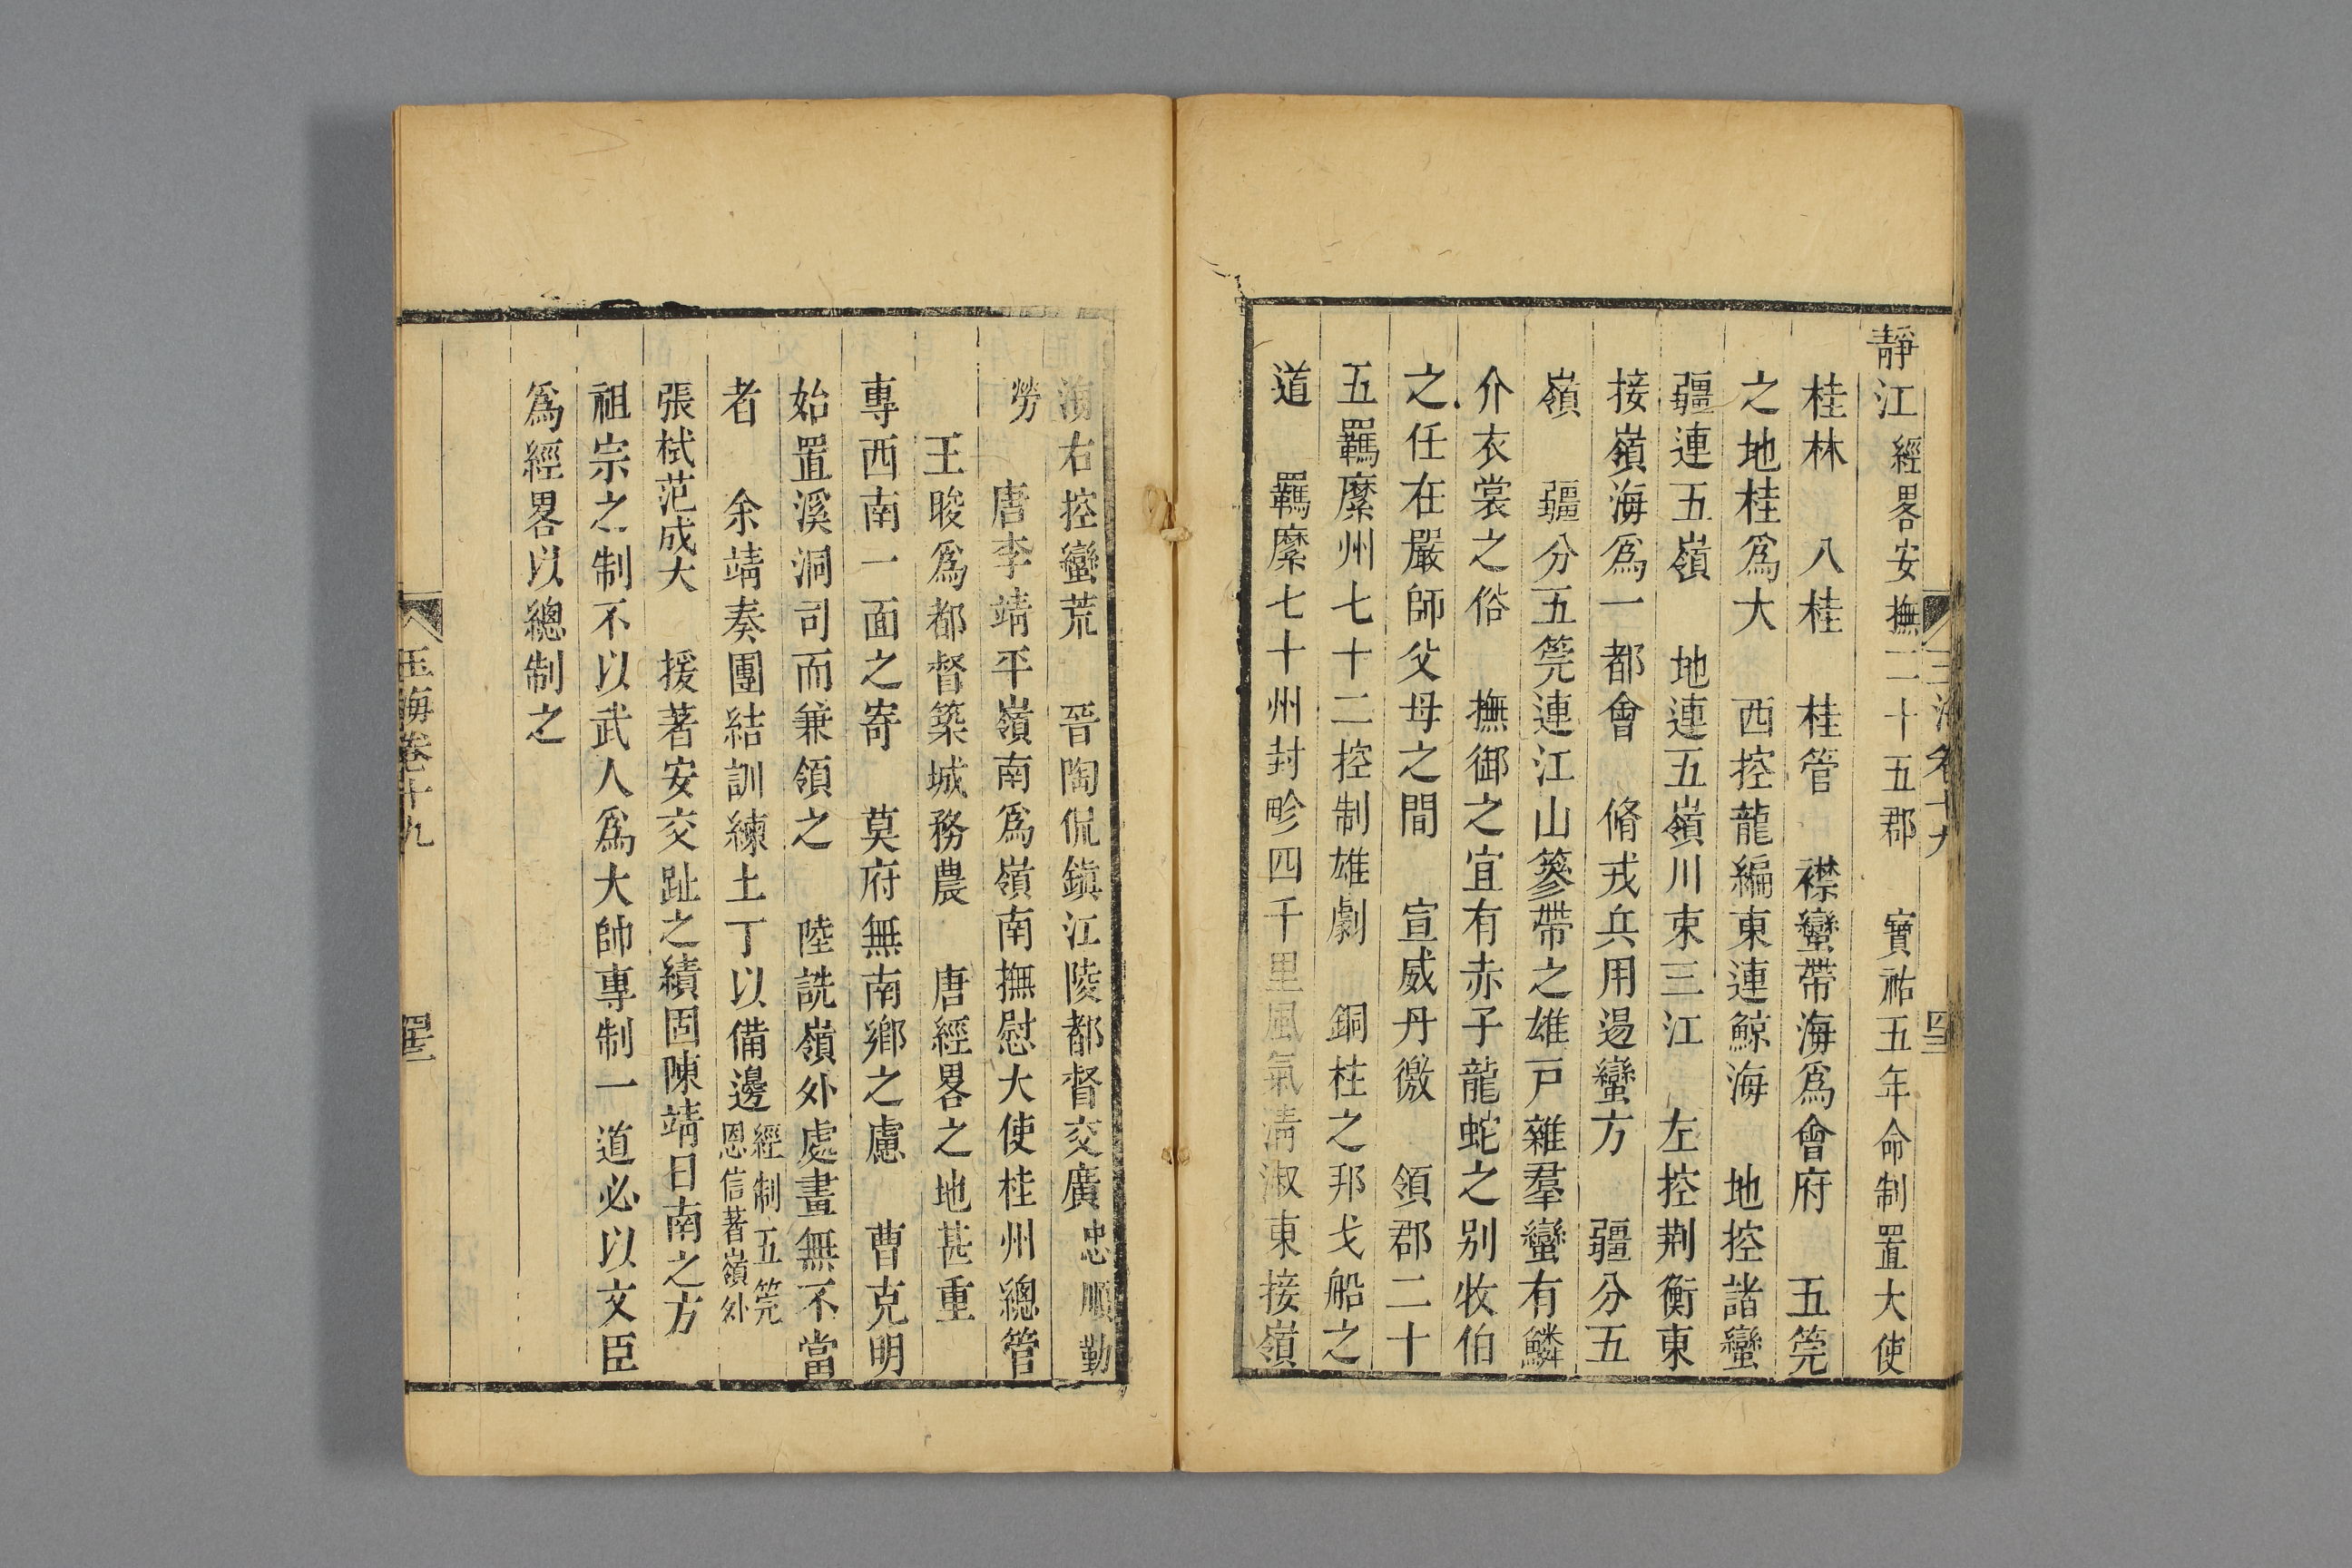 靜江經畧安撫二十五郡 寶祐五年命制置大使
桂林 八桂 桂管 襟蠻帶海爲會府 五筦
之地桂爲大 西控龍編東連鯨海 地控諸蠻
疆連五嶺 地連五嶺川束三江 左控荆衡東
接嶺海爲一都會 脩戎兵用遏蠻方 疆分五
嶺 疆分五筦連江山篸帶之雄戸雜羣蠻有鱗
介衣裳之俗 撫御之宜有赤子龍蛇之别牧伯
之任在嚴師父母之間 宣威丹徼 領郡二十
五羈縻州七十二控制雄劇 銅柱之邦戈船之
道 羈縻七十州封畛四千里風氣淸淑東接嶺
海右控蠻荒 晉陶侃鎭江陵都督交廣忠順勤
勞 唐李靖平嶺南爲嶺南撫慰大使桂州總管
王晙爲都督築城務農 唐經畧之地甚重
專西南一面之寄 莫府無南鄉之慮 曹克明
始置溪洞司而兼領之 陸詵嶺外處畫無不當
者 余靖奏團結訓練土丁以備邊經制五筦
恩信著嶺外
張栻范成大 援著安交趾之績固陳靖日南之方
祖宗之制不以武人爲大帥專制一道必以文臣
爲經畧以總制之
玉海卷十九